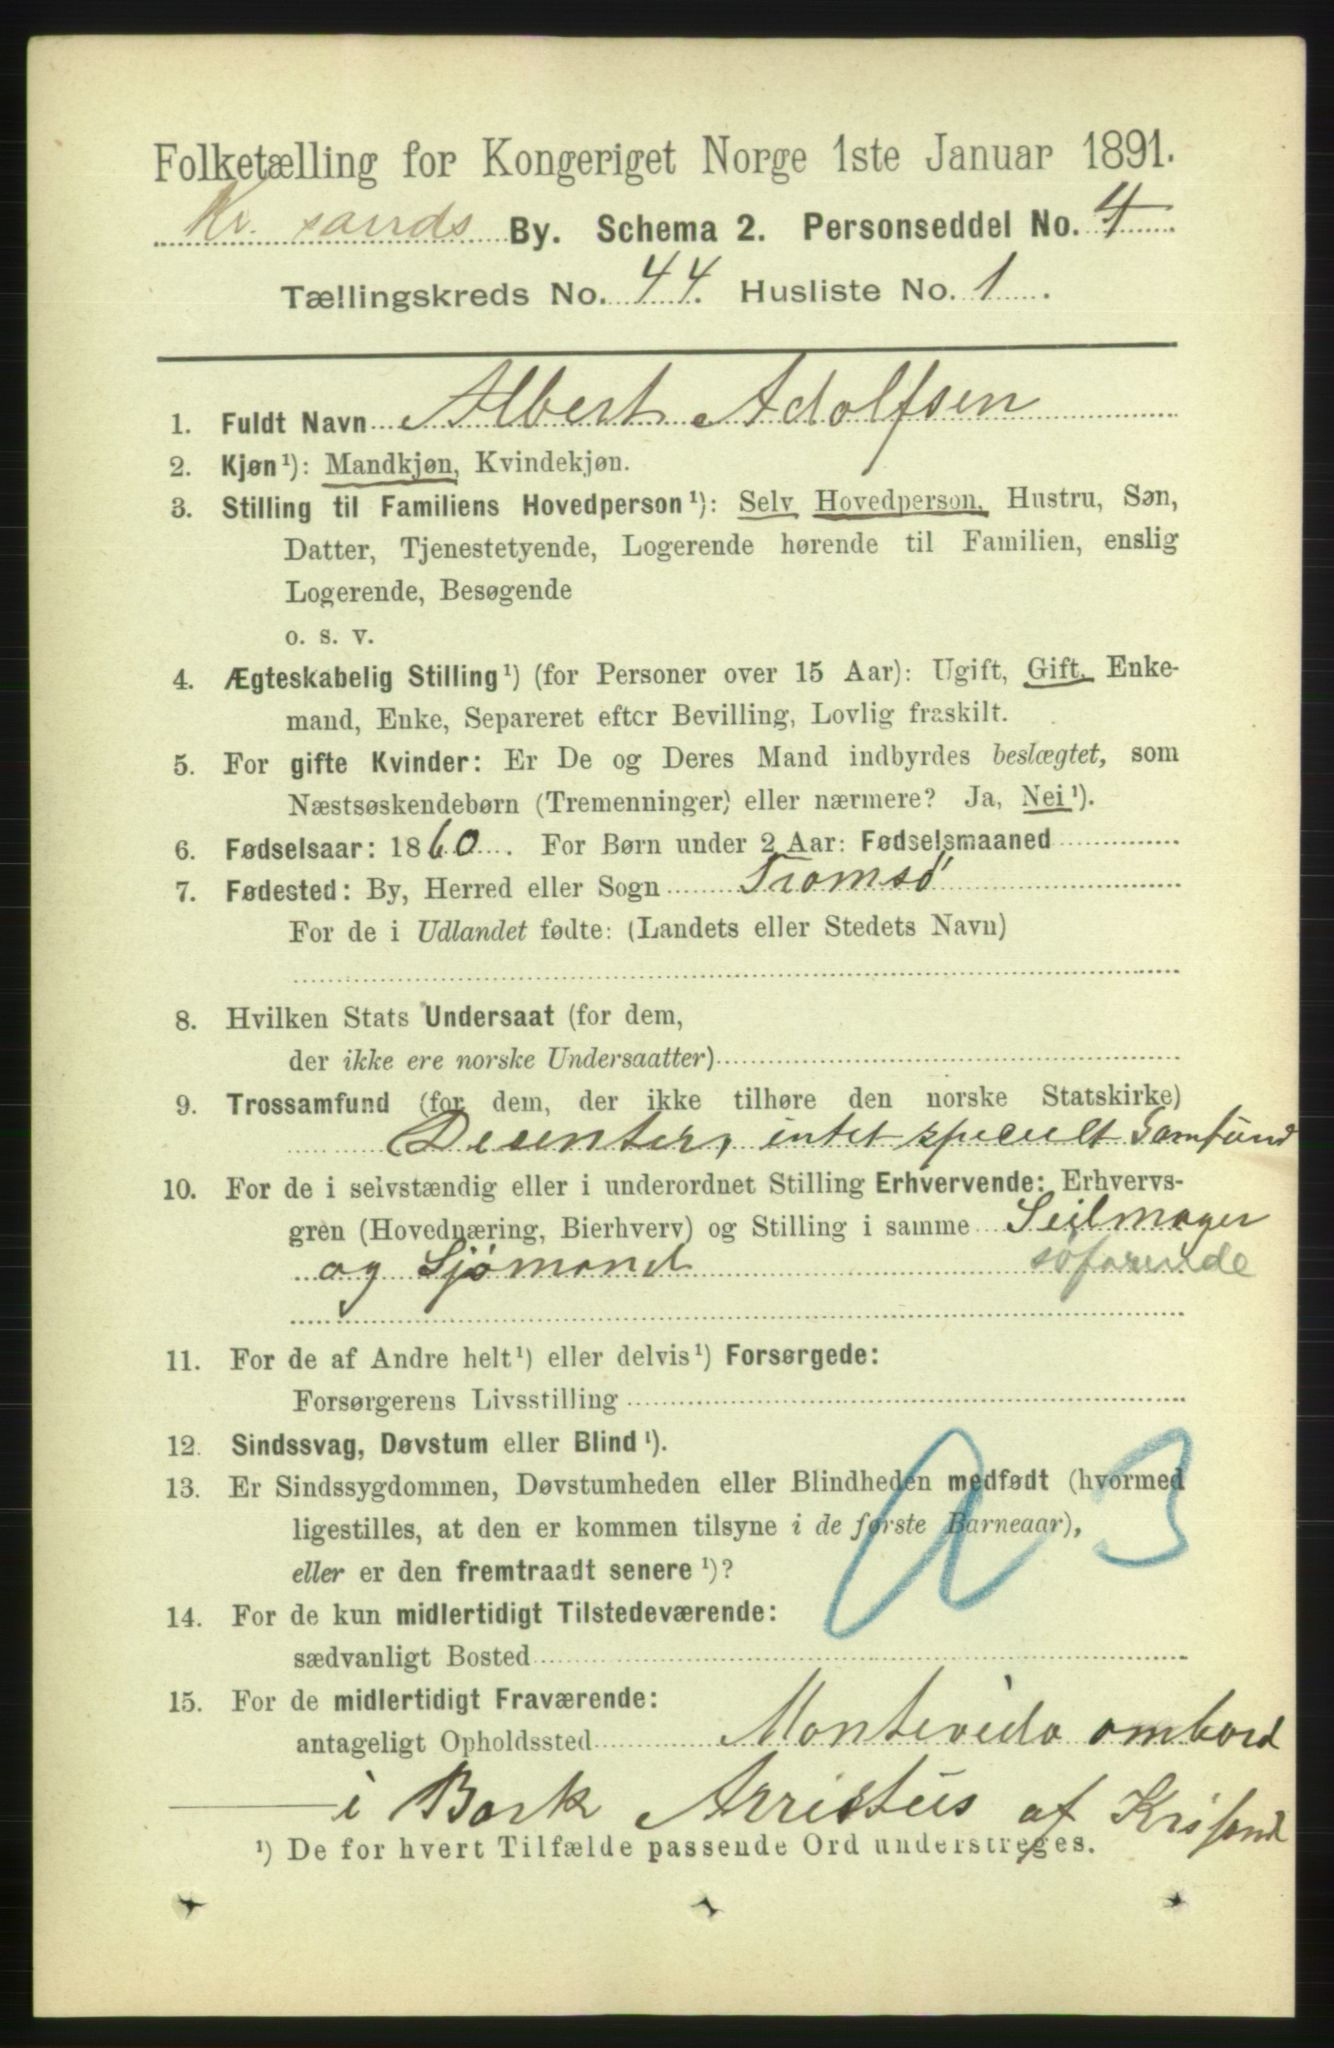 Folketælling for Kongeriget Norge 1ste Januar 1891.
Kr. sands By. Schema 2. Personseddel No. 4
Tællingskreds No. 44. Husliste No. 1.
1. Fuldt Navn Albert Adolfsen
2. Kjøn¹): Mandkjøn, Kvindekjøn.
3. Stilling til Familiens Hovedperson¹): Selv Hovedperson, Hustru, Søn,
Datter, Tjenestetyende, Logerende hørende til Familien, enslig
Logerende, Besøgende
o. s. v.
4. Ægteskabelig Stilling¹) (for Personer over 15 Aar): Ugift, Gift, Enke-
mand, Enke, Separeret efter Bevilling, Lovlig fraskilt.
5. For gifte Kvinder: Er De og Deres Mand indbyrdes beslægtet, som
Næstsøskendebørn (Tremenninger) eller nærmere? Ja, Nei¹).
6. Fødselsaar: 1860. For Børn under 2 Aar: Fødselsmaaned
7. Fødested: By, Herred eller Sogn Tromsø
For de i Udlandet fødte: (Landets eller Stedets Navn)
8. Hvilken Stats Undersaat (for dem,
der ikke ere norske Undersaatter)
9. Trossamfund (for dem, der ikke tilhøre den norske Statskirke)
Decenter, intet specielt Samfund
10. For de i selvstændig eller i underordnet Stilling Erhvervende: Erhvervs-
gren (Hovednæring, Bierhverv) og Stilling i samme Seilmager
og Sjømand søfarende
11. For de af Andre helt¹) eller delvis¹) Forsørgede:
Forsørgerens Livsstilling
12. Sindssvag, Døvstum eller Blind¹).
13. Er Sindssygdommen, Døvstumheden eller Blindheden medfødt (hvormed
ligestilles, at den er kommen tilsyne i de første Barneaar),
eller er den fremtraadt senere¹)?
14. For de kun midlertidigt Tilstedeværende:
sædvanligt Bosted
15. For de midlertidigt Fraværende:
antageligt Opholdssted Montevido ombord
i Bark Arristus af Krisand
¹) De for hvert Tilfælde passende Ord understreges.